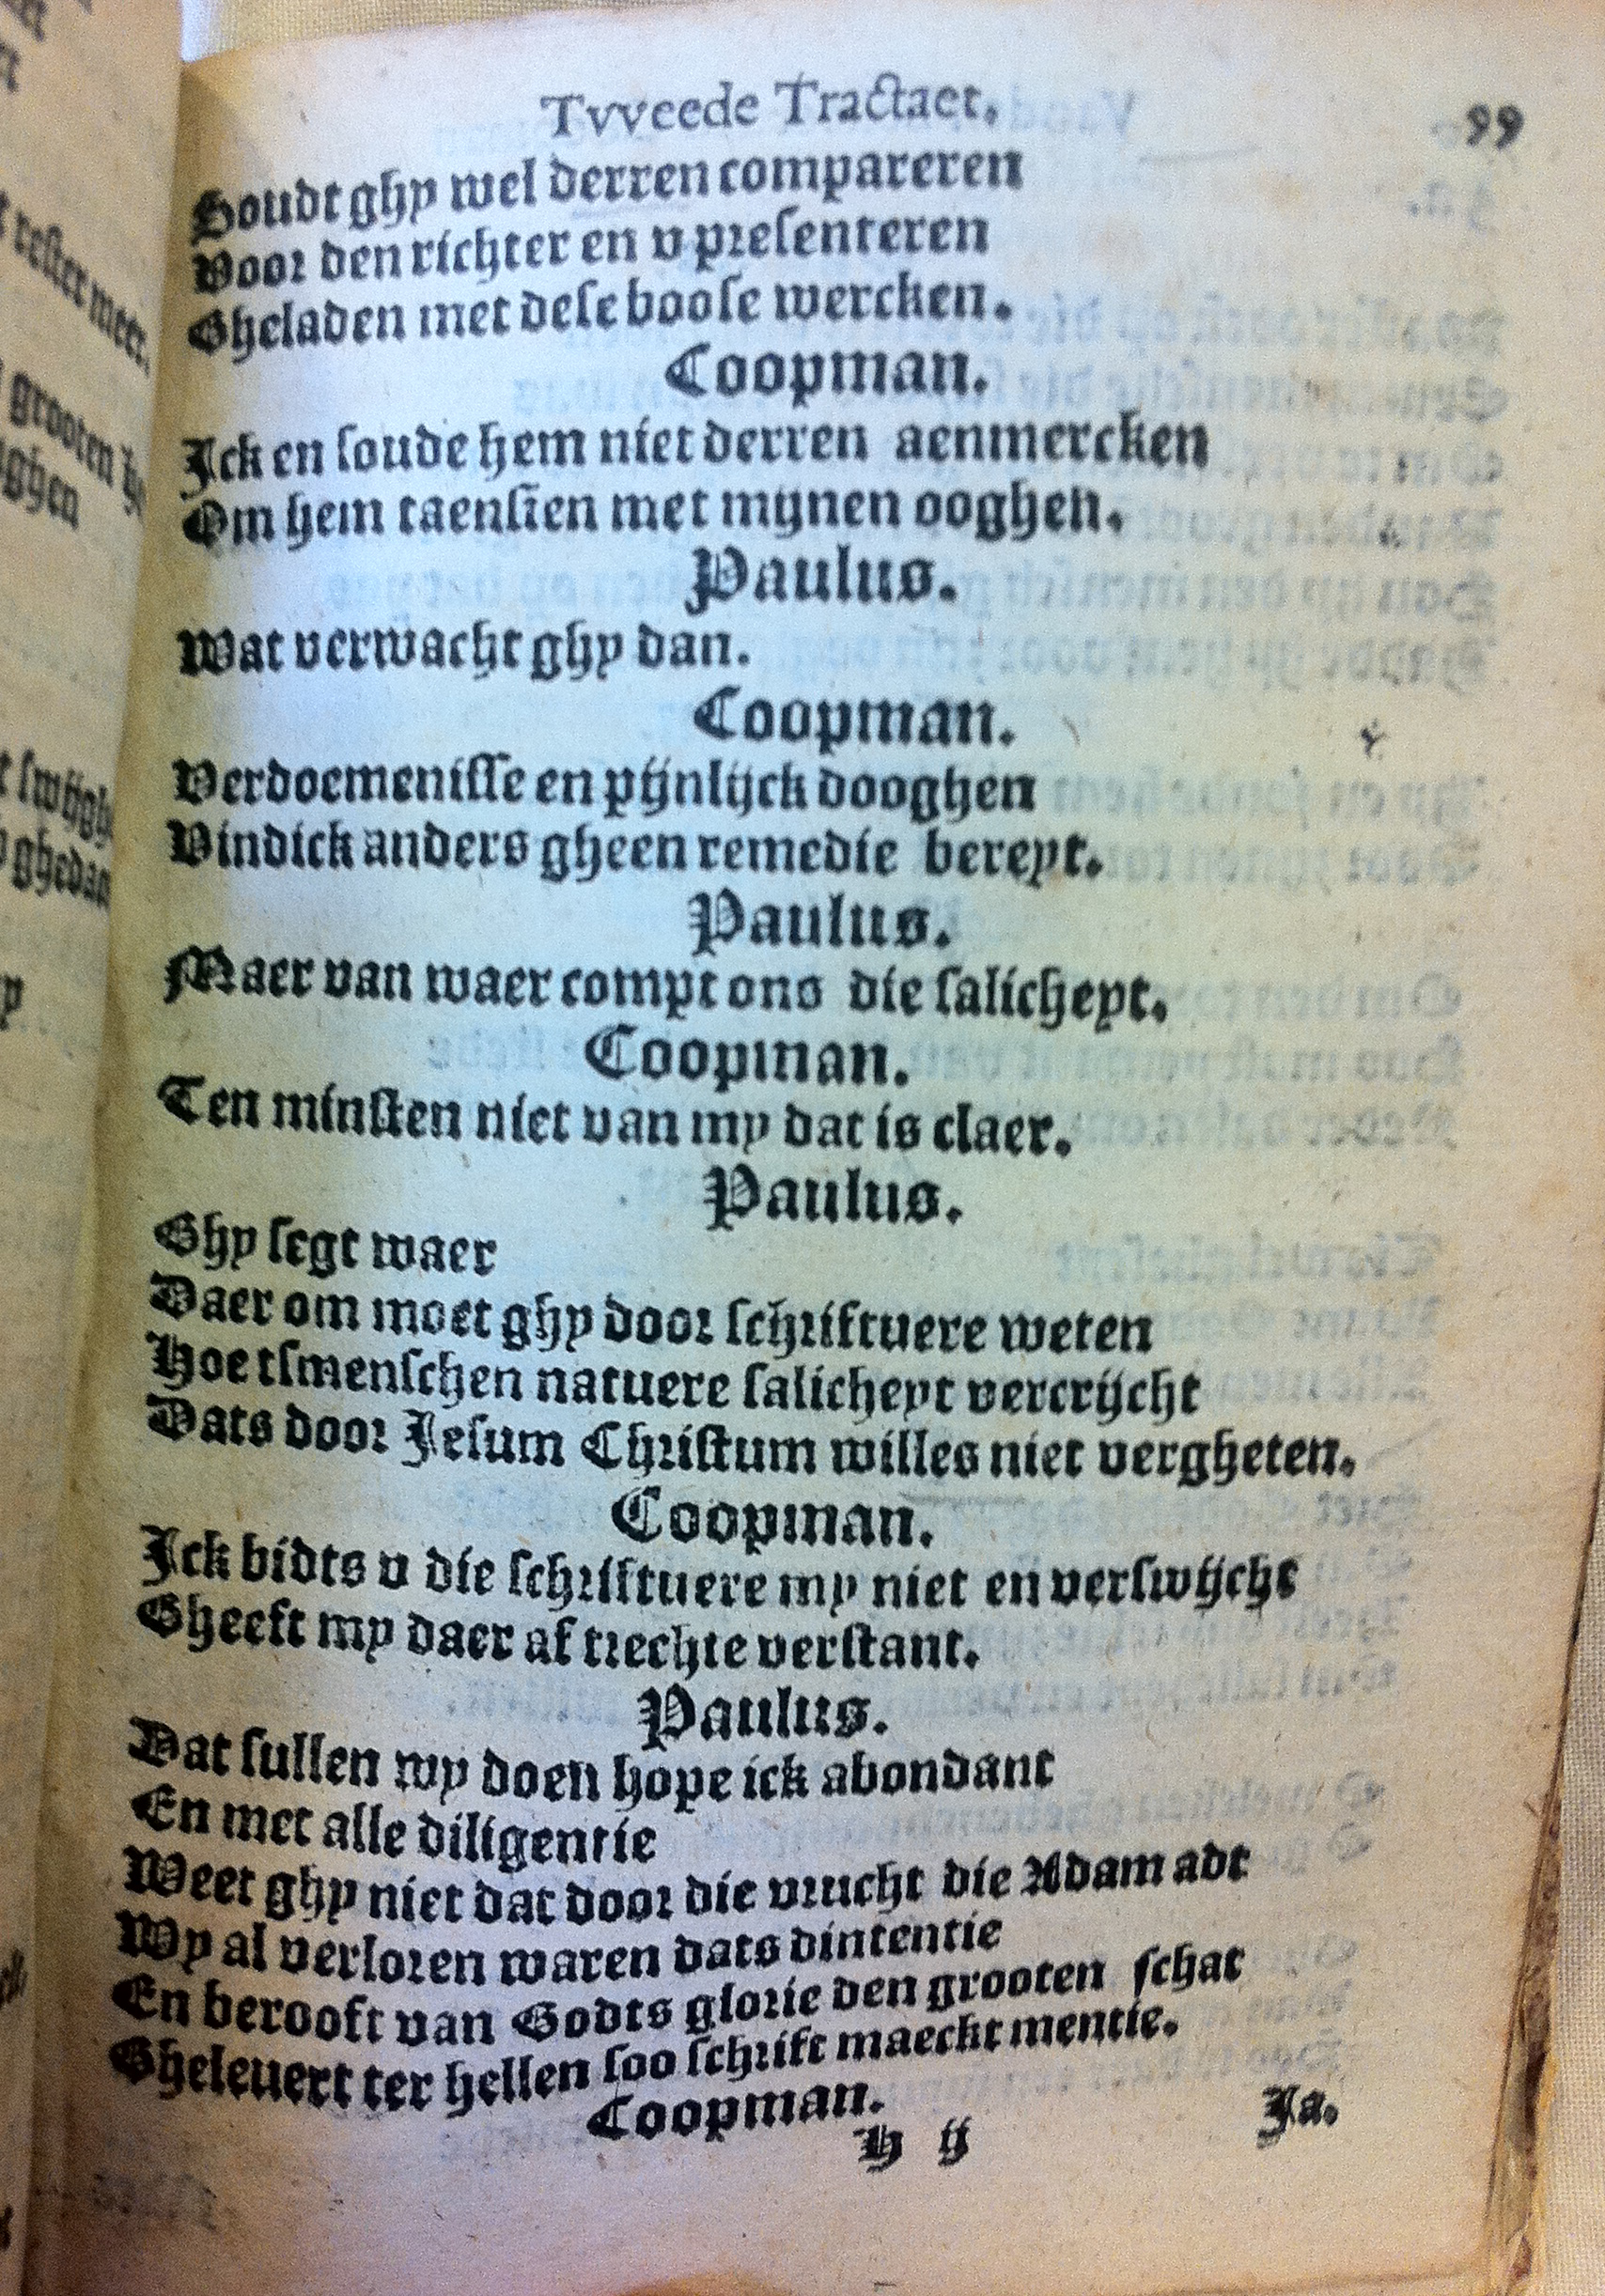 Tvveede Tractaet.
99
Soudt ghy wel derren compareren
Voor den richter en v presenteren
Gheladen met dese boose wercken.
Coopman.
Ick en soude hem niet derren aenmercken
Om hem taensien met mijnen ooghen.
Paulus.
Wat verwacht ghy dan.
Coopman.
Verdoemenisse en pijnlijck dooghen
Vindick anders gheen remedie bereyt.
Paulus.
Maer van waer compt ons die salicheyt.
Coopman.
Ten minsten niet van my dat is claer.
Paulus.
Ghy segt waer
Daer om moet ghy door schriftuere weten
Hoe tsmenschen natuere salicheyt vercrijcht
Dats door Jesum Christum willes niet vergheten.
Coopman.
Ick bidts v die schriftuere my niet en verswijcht
Gheeft my daer af trechte verstant.
Paulus.
Dat sullen wy doen hope ick abondant
En met alle diligentie
Weet ghy niet dat door die vrucht die Adam adt
Wy al verloren waren dats dintentie
En berooft van Godts glorie den grooten schat
Gheleuert ter hellen soo schrift maeckt mentie.
Coopman.
H ij
Ja.